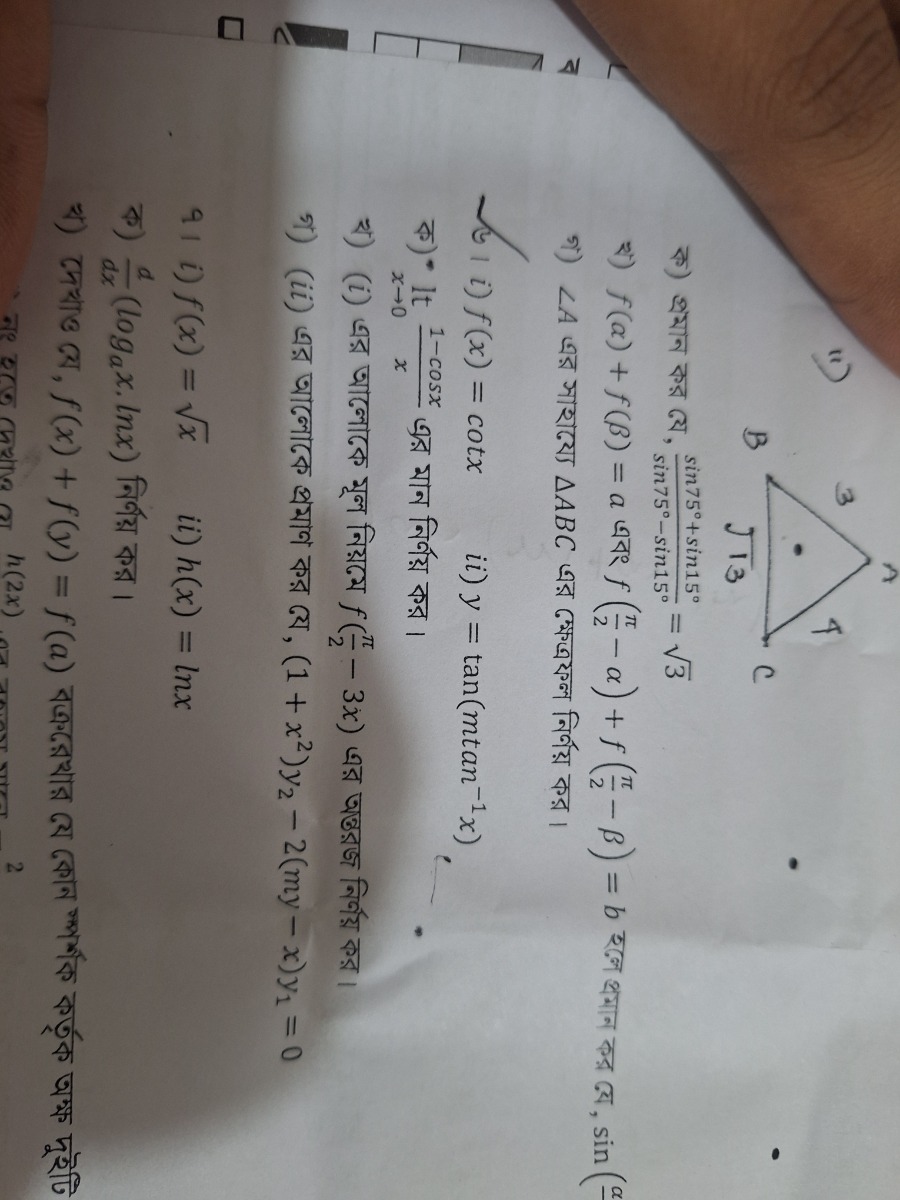 ii)
A
3
4
B
C
√13
ক) প্রমান কর যে, (sin75°+sin15°)/(sin75°−sin15°) = √3
খ) f(α) + f(β) = a এবং f(π/2 − α) + f(π/2 − β) = b হলে প্রমান কর যে, sin (α
গ) ∠A এর সাহায্যে ΔABC এর ক্ষেত্রফল নির্ণয় কর।
৬। i) f(x) = cotx ii) y = tan(mtan⁻¹x)
ক) lt x→0 (1−cosx)/x এর মান নির্ণয় কর।
খ) (i) এর আলোকে মূল নিয়মে f(π/2 − 3x) এর অন্তরজ নির্ণয় কর।
গ) (ii) এর আলোকে প্রমাণ কর যে, (1 + x²)y₂ − 2(my − x)y₁ = 0
৭। i) f(x) = √x ii) h(x) = lnx
ক) d/dx (logₐx. lnx) নির্ণয় কর।
খ) দেখাও যে, f(x) + f(y) = f(a) বক্ররেখার যে কোন স্পর্শক কর্তৃক অক্ষ দুইটি
হতে দেখাও যে h(2x)